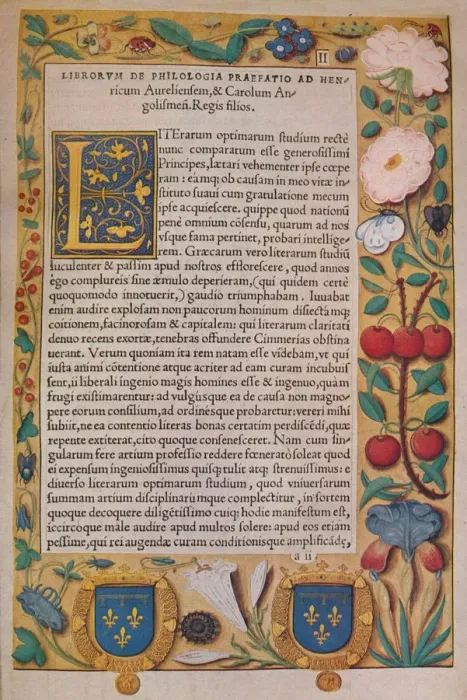 II
LIBRORVM DE PHILOLOGIA PRAEFATIO AD HEN⸗
ricum Aureliensem, & Carolum An⸗
golismeñ. Regis filios.
LITErarum optimarum studium rectè
nunc comparatum esse generosissimi
Principes, lætari vehementer ipse cœpe
ram : eamq; ob causam in meo vitæ in⸗
stituto suaui cum gratulatione mecum
ipse acquiescere. quippe quod nationũ
penè omnium cõsensu, quarum ad nos
vsque fama pertinet, probari intellige⸗
rem. Græcarum vero literarum studiũ
luculenter & passim apud nostros efflorescere, quod annos
ego complureis sine æmulo deperieram, (qui quidem certè
quoquomodo innotuerit,) gaudio triumphabam. Iuuabat
enim audire explosam non paucorum hominum disectamq;
coitionem, facinorosam & capitalem: qui literarum claritati
denuo recens exortæ, tenebras offundere Cimmerias obstina
uerant. Verum quoniam ita rem natam esse videbam, vt qui
iusta animi cõtentione atque acriter ad eam curam incubuis
sent, ii liberali ingenio magis homines esse & ingenuo, quàm
frugi existimarentur: ad vulgusque ea de causa non magno⸗
pere eorum consilium, ad ordinesque probaretur: vereri mihi
subiit, ne ea contentio literas bonas certatim perdiscẽdi, quæ
repente extiterat, cito quoque consenesceret. Nam cum sin⸗
gularum fere artium professio reddere fœneratò soleat quod
ei expensum ingeniosissimus quisq; tulit atq; strenuissimus: e
diuerso literarum optimarum studium, quod vniuersarum
summam artium disciplinarumque complectitur, in sortem
quoque decoquere diligẽtissimo cuiq; hodie manifestum est,
iccircoque male audire apud multos solere: apud eos etiam
pessime, qui rei augendæ curam conditionisque amplificãdę,
a ii